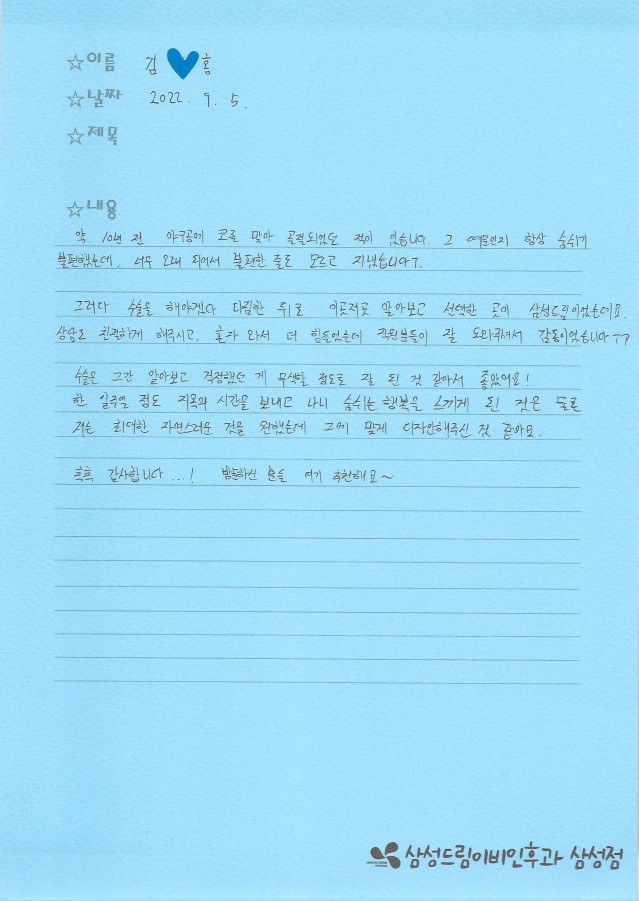 ☆이름 김 홍
☆날짜 2022. 9. 5.
☆제목
☆내용
약 10년 전 야구공에 코를 맞아 골절되었던 적이 있습니다. 그 때문인지 항상 숨쉬기
불편했는데, 너무 오래 되어서 불편한 줄도 모르고 지냈습니다ㅜ.
그러다 수술을 해야겠다 다짐한 뒤로 이곳저곳 알아보고 선택한 곳이 삼성드림이었는데요.
상담도 친절하게 해주시고, 혼자 와서 더 힘들었는데 직원분들이 잘 도와주셔서 감동이었습니다ㅜㅜ
수술은 그간 알아보고 걱정했던 게 무색할 정도로 잘 된 것 같아서 좋았어요!
한 일주일 정도 지옥의 시간을 보내고 나니 숨쉬는 행복을 느끼게 된 것은 물론
저는 최대한 자연스러운 것을 원했는데 그에 맞게 디자인해주신 것 같아요.
흑흑 감사합니다...! 방문하신 분들 여기 추천해요~
삼성드림이비인후과 삼성점